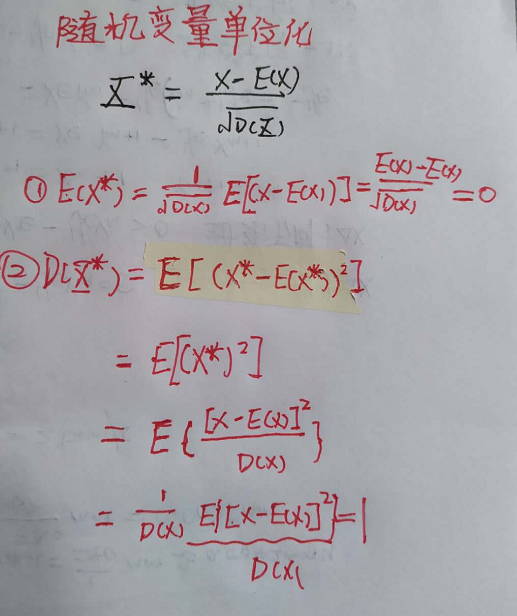 随机变量单位化
X* = (X - E(X)) / √D(X)
① E(X*) = 1/√D(X) E[(X - E(X))] = (E(X) - E(X))/√D(X) = 0
② D(X*) = E[(X* - E(X*))²]
= E[(X*)²]
= E{[X - E(X)]²/D(X)}
= 1/D(X) E{[X - E(X)]²} = 1
D(X)